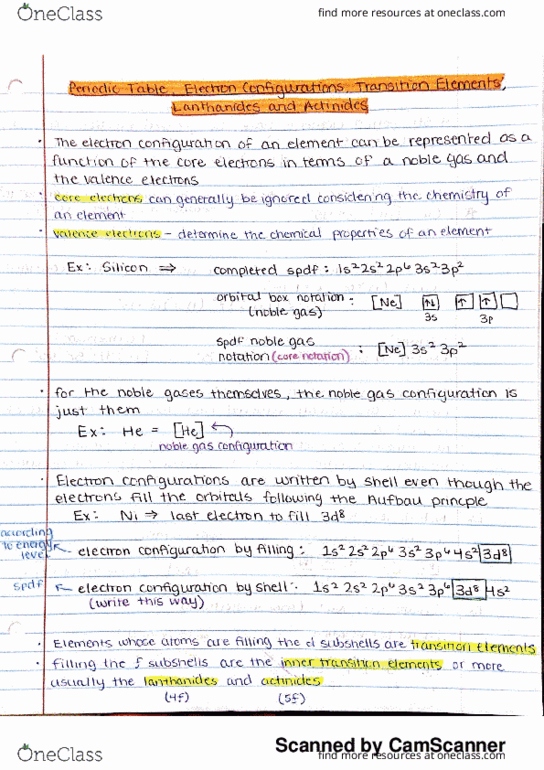 OneClass find more resources at oneclass.com
Periodic Table, Electron Configurations, Transition Elements,
Lanthanides and Actinides
• The electron configuration of an element can be represented as a
function of the core electrons in terms of a noble gas and
the valence electrons
• core electrons can generally be ignored considering the chemistry of
an element
• valence electrons - determine the chemical properties of an element
Ex: Silicon ⇒ completed spdf : 1s² 2s² 2p⁶ 3s² 3p²
orbital box notation : [Ne] [↑↓] [↑][↑][ ]
(noble gas) 3s 3p
spdf noble gas
notation (core notation) : [Ne] 3s² 3p²
• for the noble gases themselves, the noble gas configuration is
just them
Ex: He = [He]
noble gas configuration
• Electron configurations are written by shell even though the
electrons fill the orbitals following the Aufbau principle
Ex: Ni ⇒ last electron to fill 3d⁸
according
to energy
level ← electron configuration by filling : 1s² 2s² 2p⁶ 3s² 3p⁶ 4s² 3d⁸
spdf ← electron configuration by shell : 1s² 2s² 2p⁶ 3s² 3p⁶ 3d⁸ 4s²
(write this way)
• Elements whose atoms are filling the d subshells are transition elements
• filling the f subshells are the inner transition elements or more
usually the lanthanides and actinides
(4f) (5f)
Scanned by CamScanner
OneClass find more resources at oneclass.com